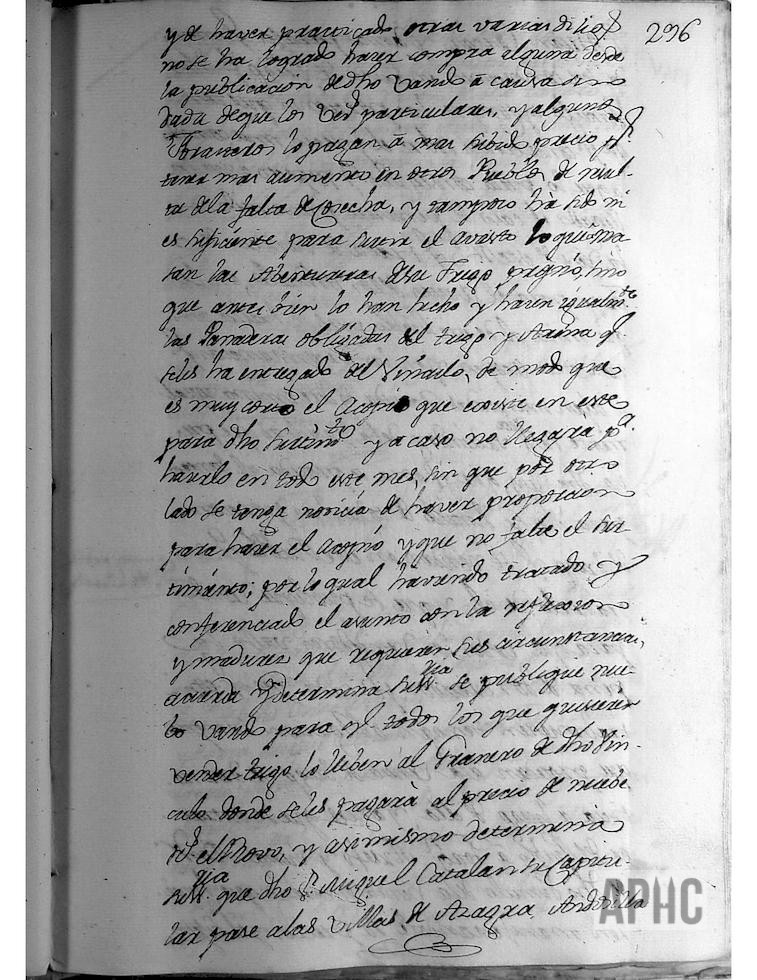 296
y de haver practicado otras varias dilig.s
no se ha logrado hacer compra alguna desde
la publicacion de dho vando á causa sin
dada de que los vez.s particulares, y algunos
Foraxteros lo pagan á mas subido precio p.r
tener mas aumento en otros Pueblos de resul-
ta de la falta de Cosecha, y tampoco há sido ni
es suficiente para surtir el avasto lo que ma
tan las Aventuras de su Trigo propio, sino
que antes bien lo han hecho y hacen igualm.te
las Panaderas obligadas del trigo y Arina q.e
seles ha entregado del Vinculo, de modo que
es muy corto el Acopio que existe en este
para dho surtim.to y acaso no llegará p.a
hacerlo en todo este mes, sin que por otro
lado se tenga noticia de haver proporcion
para hacer el acopio y que no falte el sur
timiento; por lo qual haviendo tratado y
conferenciado el asunto con la reflexion
y madurez que requieren sus circunstancias,
acuerda y determina su S.ria se publique nue-
bo vando para q.e todos los que quisieren
vender trigo lo lleben al Granero de dho Vin-
culo donde seles pagará al precio de nuebe
r.s el Rovo, y asimismo determina
su S.ria que dho S.r Miguel Catalan su Capitu-
lar pase a las Villas de Azagra Andosilla
APHC